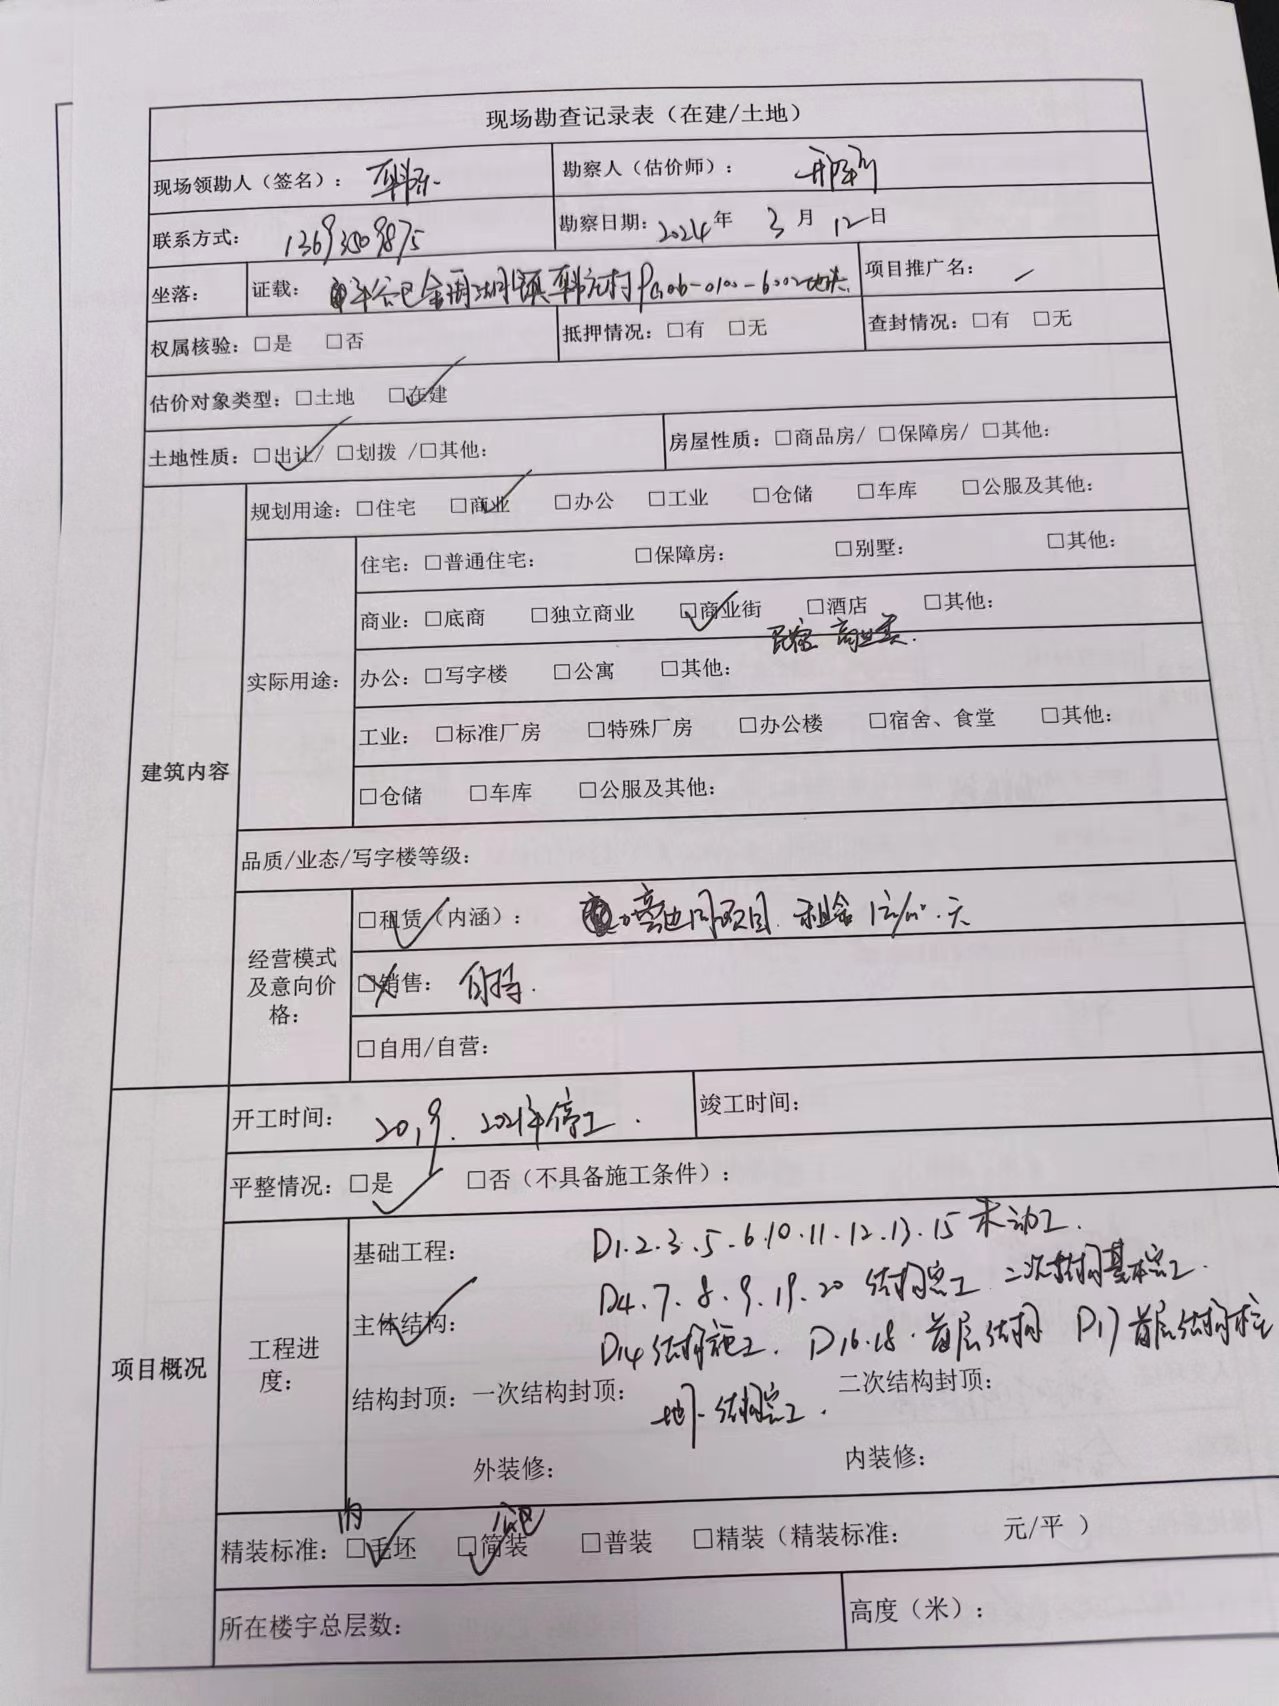 现场勘查记录表（在建/土地）
现场领勘人（签名）： 勘察人（估价师）：
联系方式： 13693509875 勘察日期：2024年 3月 12日
坐落： 证载： 平谷区金海湖镇 村PG06-0100-6002地块 项目推广名： /
权属核验：□是 □否 抵押情况：□有 □无 查封情况：□有 □无
估价对象类型：□土地 □在建
土地性质：□出让/ □划拨 /□其他： 房屋性质：□商品房/ □保障房/ □其他：
建筑内容
规划用途：□住宅 □商业 □办公 □工业 □仓储 □车库 □公服及其他：
实际用途：
住宅：□普通住宅： □保障房： □别墅： □其他：
商业：□底商 □独立商业 □商业街 □酒店 □其他：
民宿 商业类.
办公：□写字楼 □公寓 □其他：
工业： □标准厂房 □特殊厂房 □办公楼 □宿舍、食堂 □其他：
□仓储 □车库 □公服及其他：
品质/业态/写字楼等级：
经营模式及意向价格：
□租赁（内涵）： 旁边同项目. 租金1元/㎡.天
□销售： 自持.
□自用/自营：
项目概况
开工时间： 2019. 2021年停工. 竣工时间：
平整情况：□是 □否（不具备施工条件）：
工程进度：
基础工程： D1.2.3.5.6.10.11.12.13.15 未动工.
D4.7.8.9.19.20 结构完工 二次结构基本完工.
主体结构： D14结构施工. D16.18.首层结构 D17首层结构柱
结构封顶：一次结构封顶： 二次结构封顶：
地下结构完工.
外装修： 内装修：
内
精装标准：□毛坯 □简装 □普装 □精装（精装标准： 元/平 ）
所在楼宇总层数： 高度（米）：